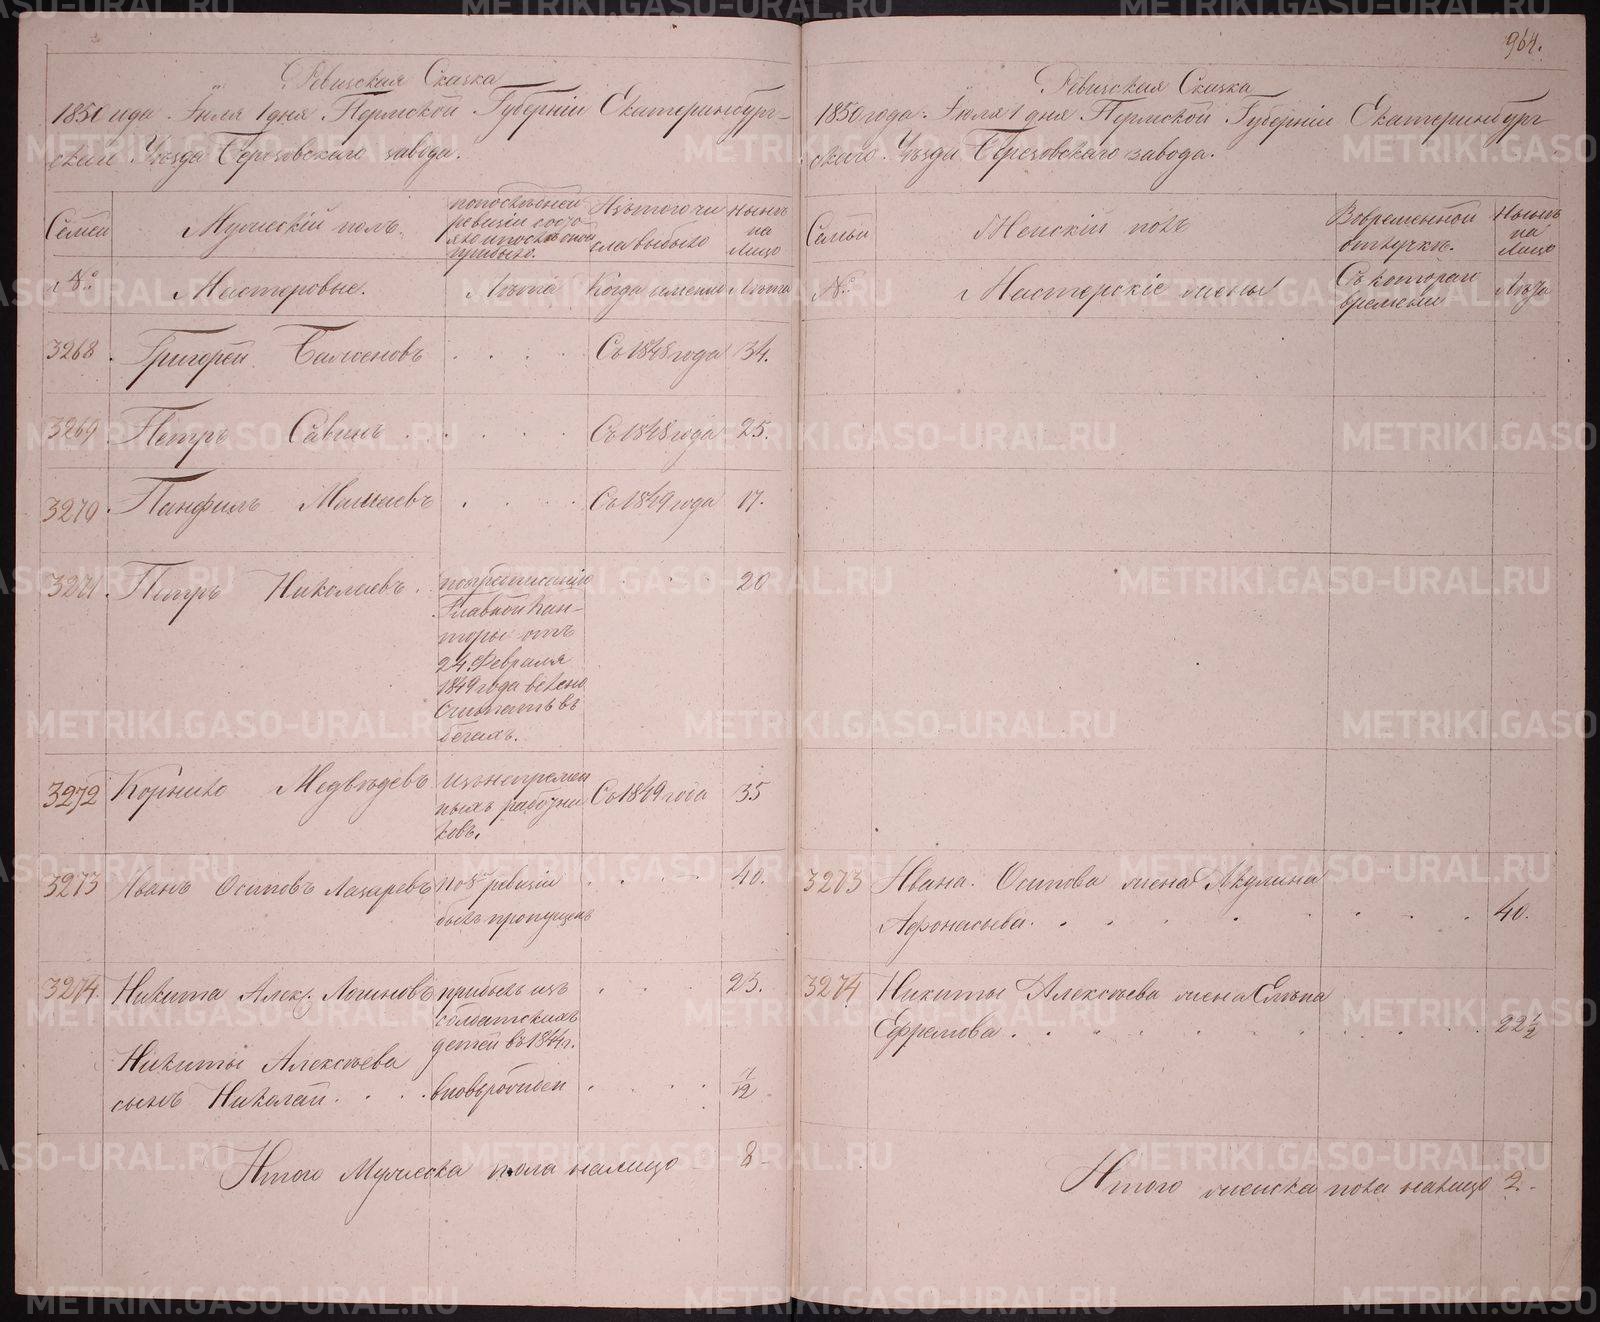 Ревизская Сказка
1850 года Іюля 1 дня Пермской Губерніи Екатеринбург-
скаго Уѣзда Березовскаго завода.
Семьи
Мужескій полъ.
по последней
ревизіи состо
яло и после оной
прибыло.
Изъ того чи
сла выбыло
Нынѣ
на
лицо
№.
Мастеровые.
Лѣта
Когда именно
Лѣта
3268. Григорей Баженовъ . . . . Съ 1848 года 34.
3269 Петръ Савинъ . . . . . Съ 1848 года 25.
3270 Панфилъ Мамаевъ . . . . Съ 1849 года 17.
3271 Петръ Николаевъ . по предписанію . . . 20
Главной Кан-
торы отъ
24. Февраля
1849 года велено
Считать въ
бегахъ.
3272 Корнило Медвѣдевъ изъ непремен Съ 1849 года 35
ныхъ работни
ковъ.
3273 Иванъ Осиповъ Лазаревъ по 8й ревизіи . . . . 40.
былъ пропущенъ
3274 Никита Алекс. Логиновъ прибылъ изъ . . . 23.
солдатскихъ
детей въ 1844 г.
Никиты Алексѣева
сынъ Николай . . . вновьрожден . . . . 1/12
Итого Мужеска пола налицо 8-
964.
Ревизская Сказка
1850 года. Іюля 1 дня Пермской Губерніи Екатеринбург
скаго. Уѣзда Березовскаго завода.
Семьи
Женскій полъ
Вовременной
отлучкѣ.
Нынѣ
на
лицо
№.
Мастерскіе жены
Съ котораго
времени
Лѣта
3273 Ивана. Осипова жена Акулина
Афонасьева. . . . . . . . 40.
3274 Никиты Алексѣева жена Елѣна
Ефремова . . . . . . . . . 22 1/2
Итого женска пола налицо 2.-
METRIKI.GASO-URAL.RU